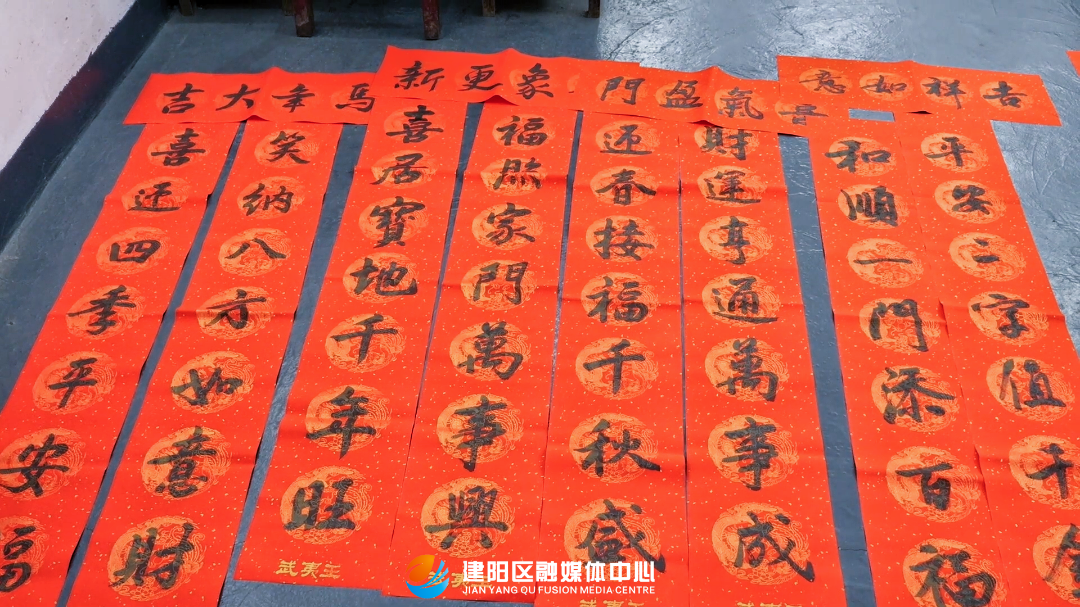 吉大年馬
新更象
門盈氣
意如祥吉
喜迎四季平安福
笑纳八方如意財
喜居寶地千年旺
福照家門萬事興
迎春接福千秋盛
財運亨通萬事成
和順一門添百福
平安二字值千金
武夷王
武夷王
建阳区融媒体中心
JIAN YANG QU FUSION MEDIA CENTRE